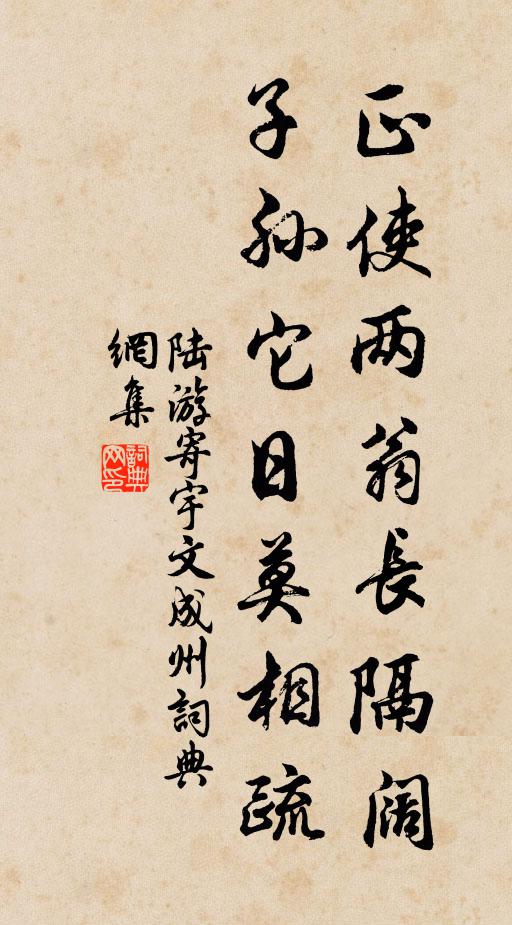 正使两翁长隔阔
子孙它日莫相疏
陆游寄宇文成州詞典
網集
詞典
网印